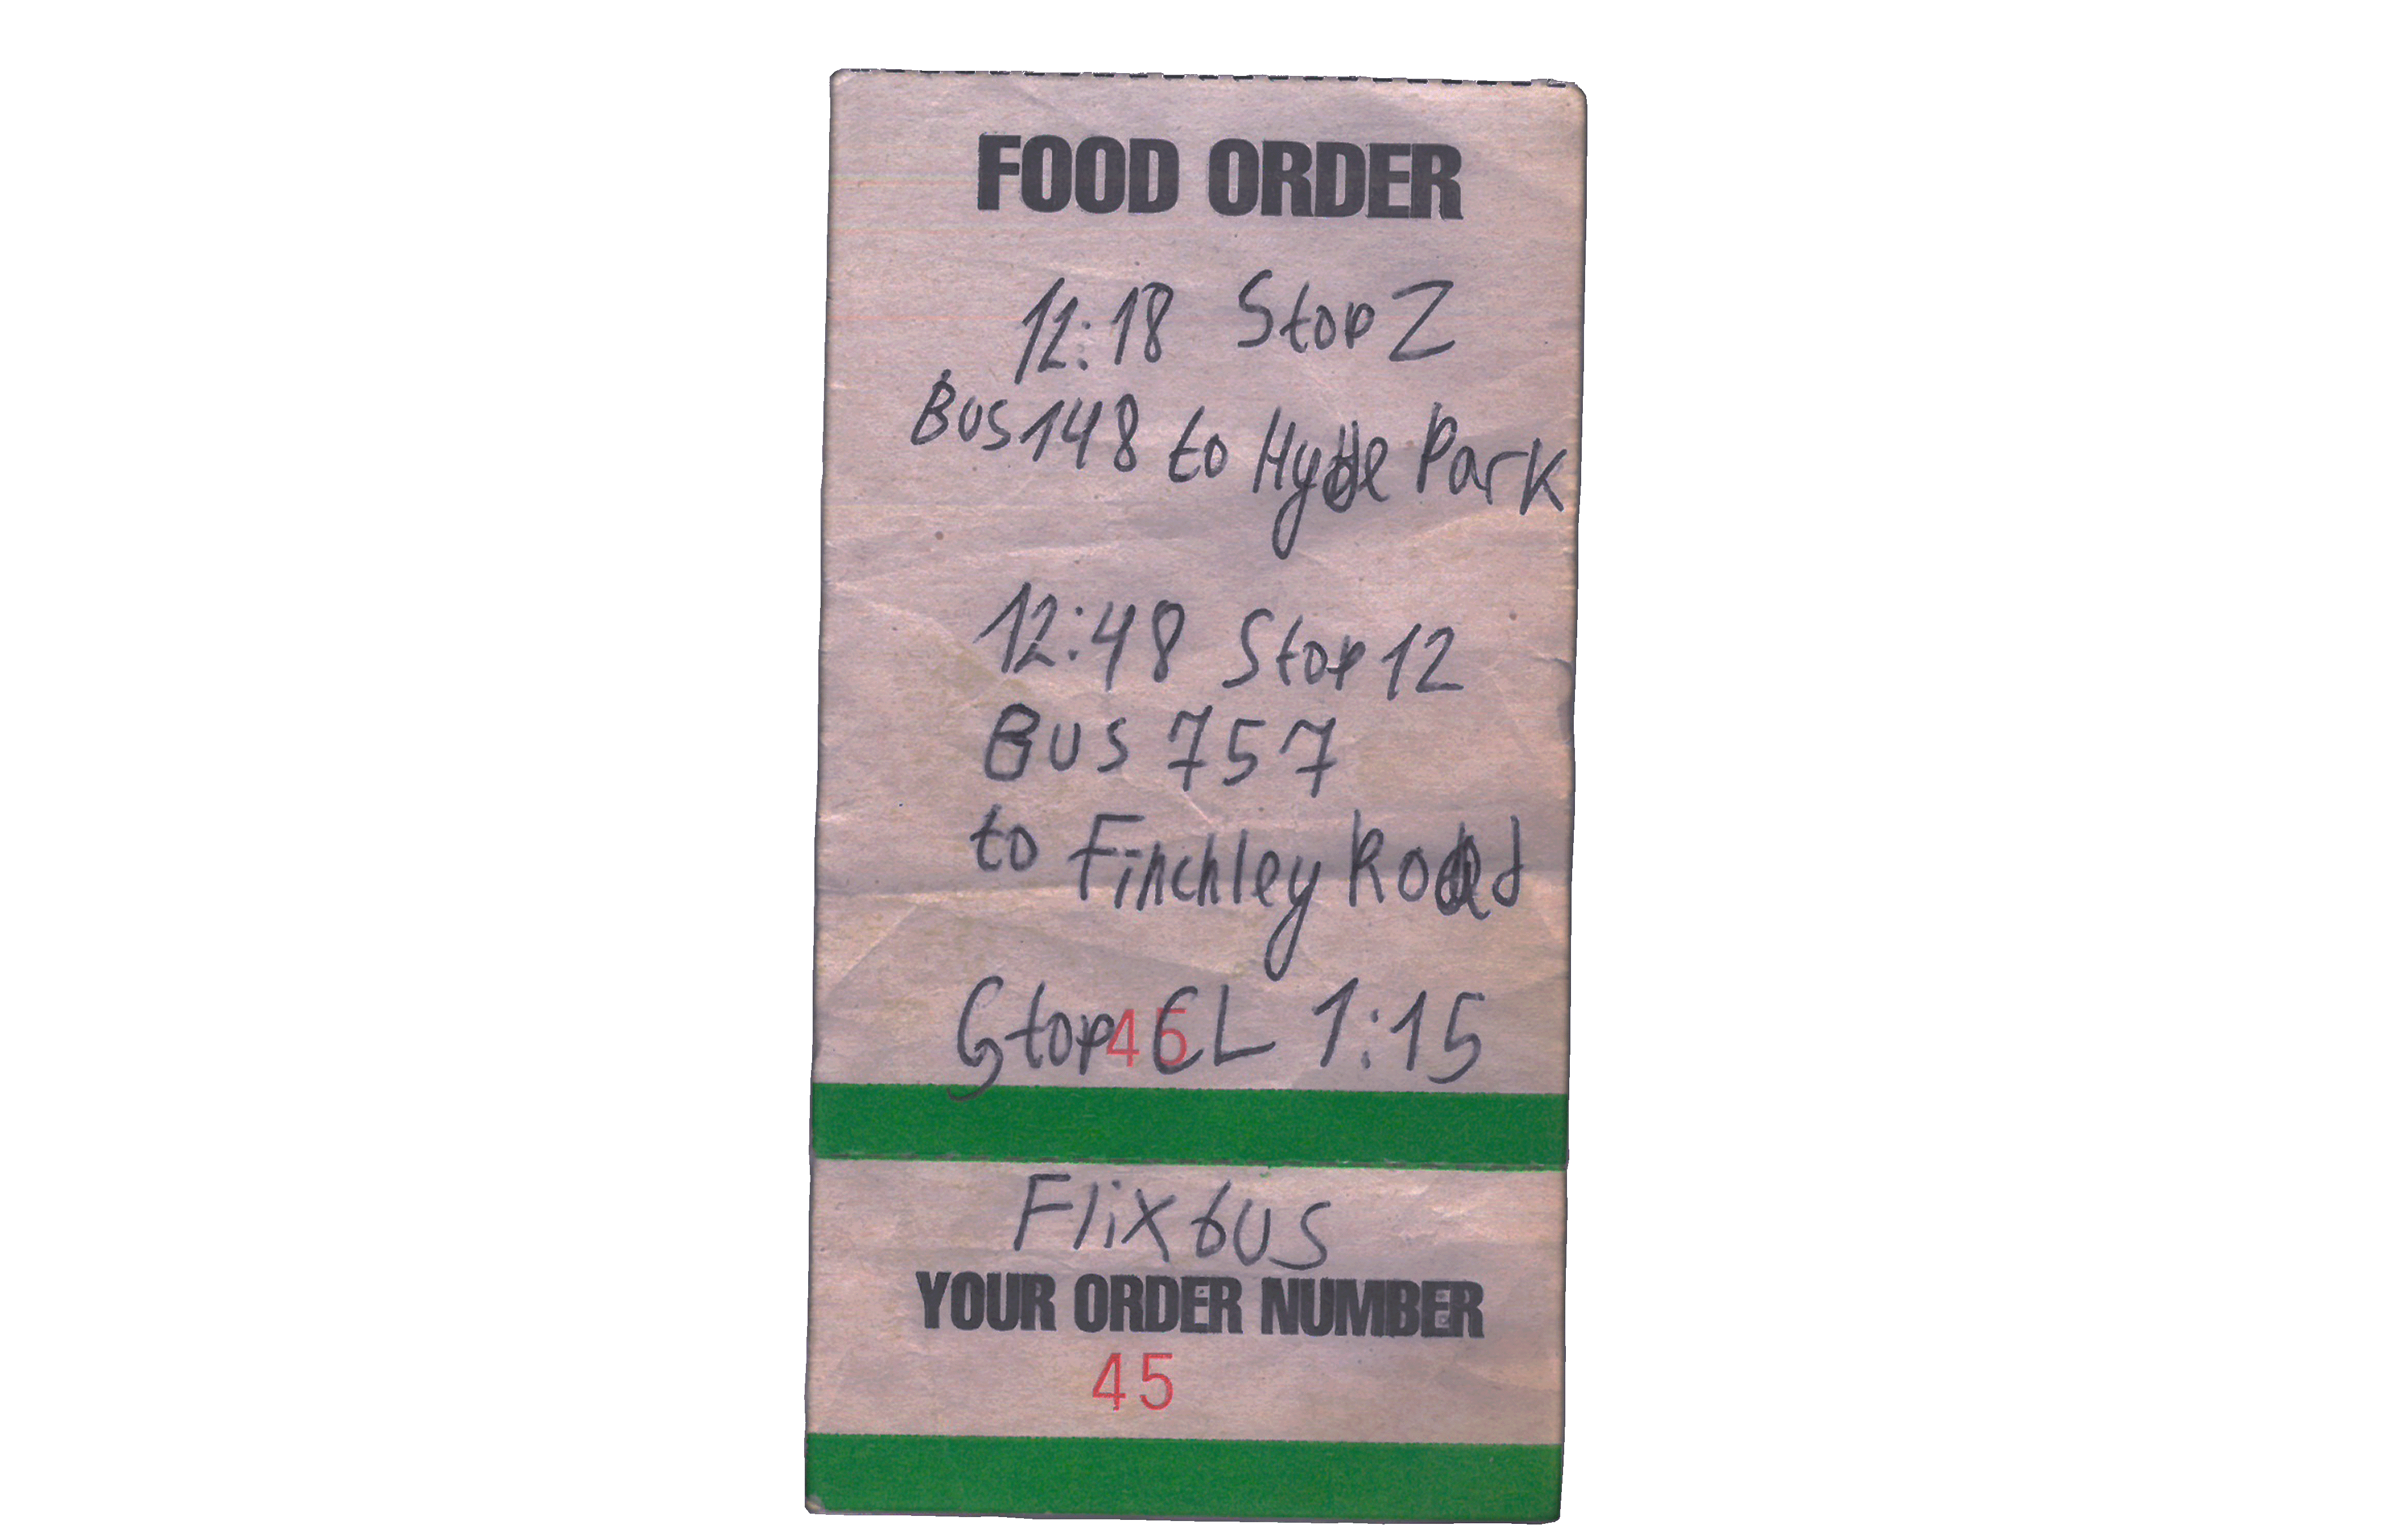 FOOD ORDER
12:18 Stop Z
Bus 148 to Hyde Park
12:48 Stop 12
Bus 757
to Finchley Road
Stop CL 1:15
45
Flixbus
YOUR ORDER NUMBER
45